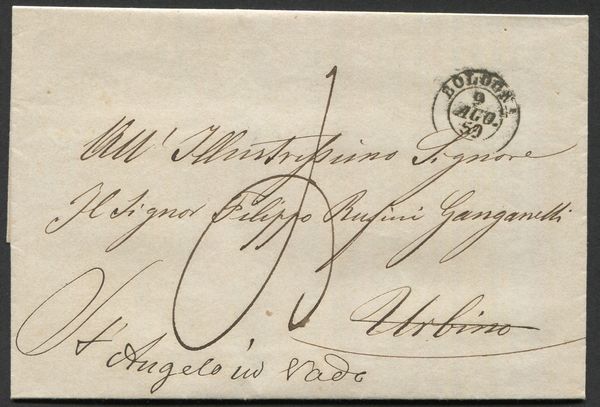 BOLOGNA
9
AGO.
50
All' Illustrissimo Signore
Il Signor Filippo Rufini Ganganelli
Urbino
S. Angelo in Vado